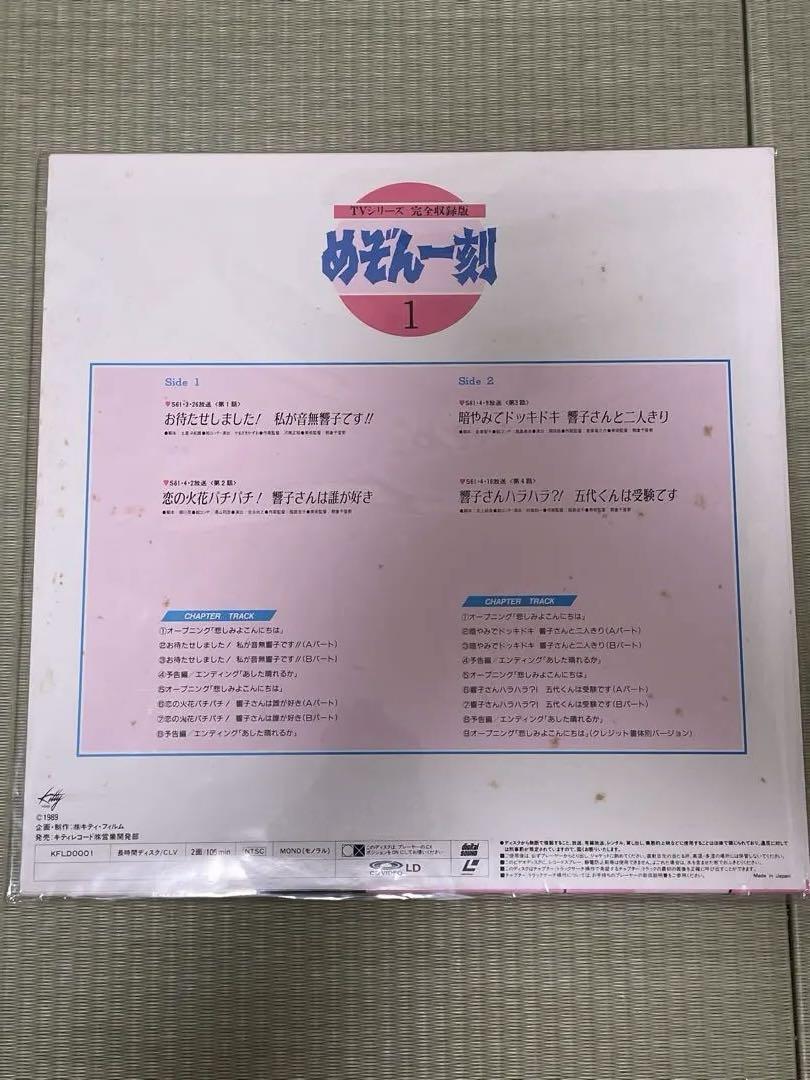 TVシリーズ 完全収録版
めぞん一刻
1
Side 1
♥S61・3・26放送〈第1話〉
お待たせしました! 私が音無響子です!!
♥S61・4・2放送〈第2話〉
恋の火花パチパチ! 響子さんは誰が好き
CHAPTER TRACK
①オープニング「悲しみよこんにちは」
②お待たせしました! 私が音無響子です!!(Aパート)
③お待たせしました! 私が音無響子です!!(Bパート)
④予告編/エンディング「あした晴れるか」
⑤オープニング「悲しみよこんにちは」
⑥恋の火花パチパチ! 響子さんは誰が好き(Aパート)
⑦恋の火花パチパチ! 響子さんは誰が好き(Bパート)
⑧予告編/エンディング「あした晴れるか」
Side 2
♥S61・4・9放送〈第3話〉
暗やみでドッキドキ 響子さんと二人きり
♥S61・4・16放送〈第4話〉
響子さんハラハラ?! 五代くんは受験です
CHAPTER TRACK
①オープニング「悲しみよこんにちは」
②暗やみでドッキドキ 響子さんと二人きり(Aパート)
③暗やみでドッキドキ 響子さんと二人きり(Bパート)
④予告編/エンディング「あした晴れるか」
⑤オープニング「悲しみよこんにちは」
⑥響子さんハラハラ?! 五代くんは受験です(Aパート)
⑦響子さんハラハラ?! 五代くんは受験です(Bパート)
⑧予告編/エンディング「あした晴れるか」
⑨オープニング「悲しみよこんにちは」(クレジット書体別バージョン)
Kitty
©1989
企画・制作:㈱キティ・フィルム
発売:キティレコード㈱営業開発部
KFLD0001
長時間ディスク/CLV
2面/105min
NTSC
MONO(モノラル)
CD VIDEO LD
digital SOUND
Made in Japan